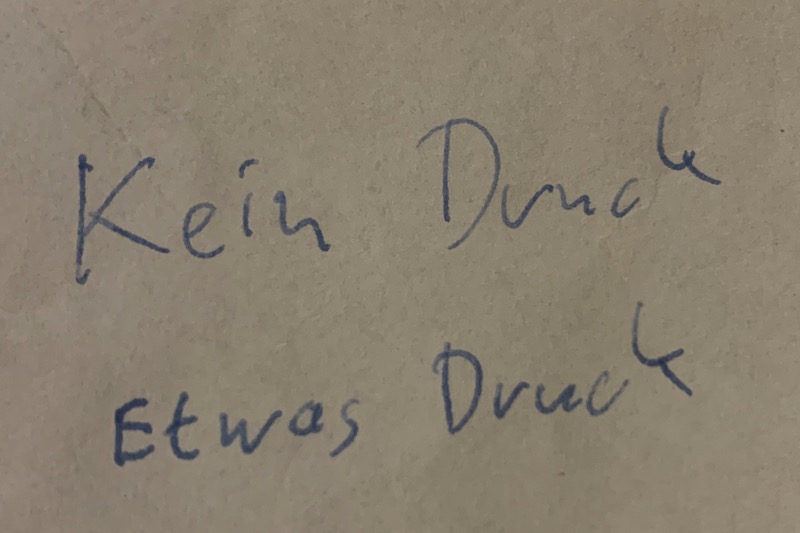 Kein Druck
Etwas Druck